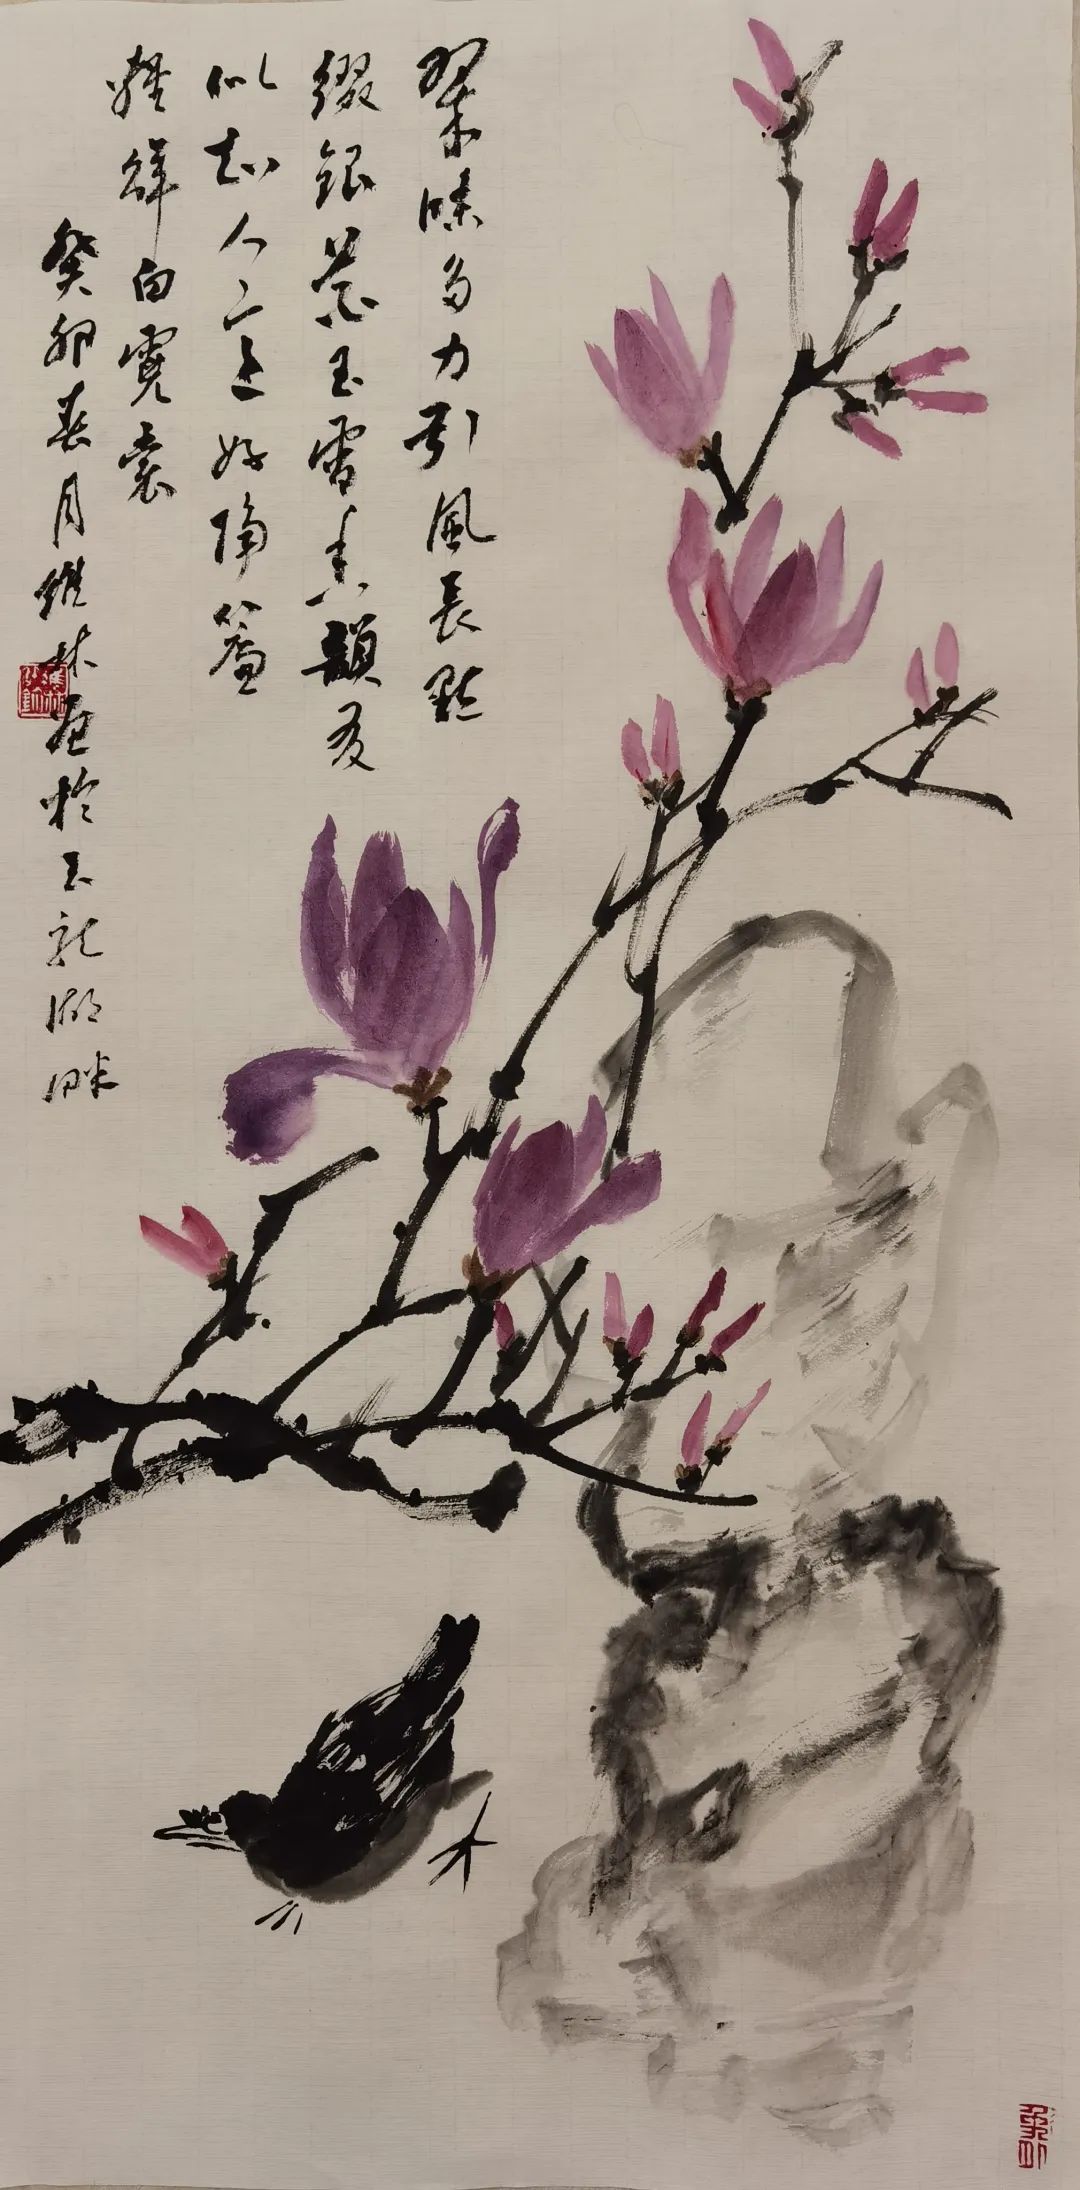 翠條多力引風長點
綴銀花玉雪香韻友
似知人意好隔簾
輕解白霓裳
癸卯春月維林画於云龙湖畔